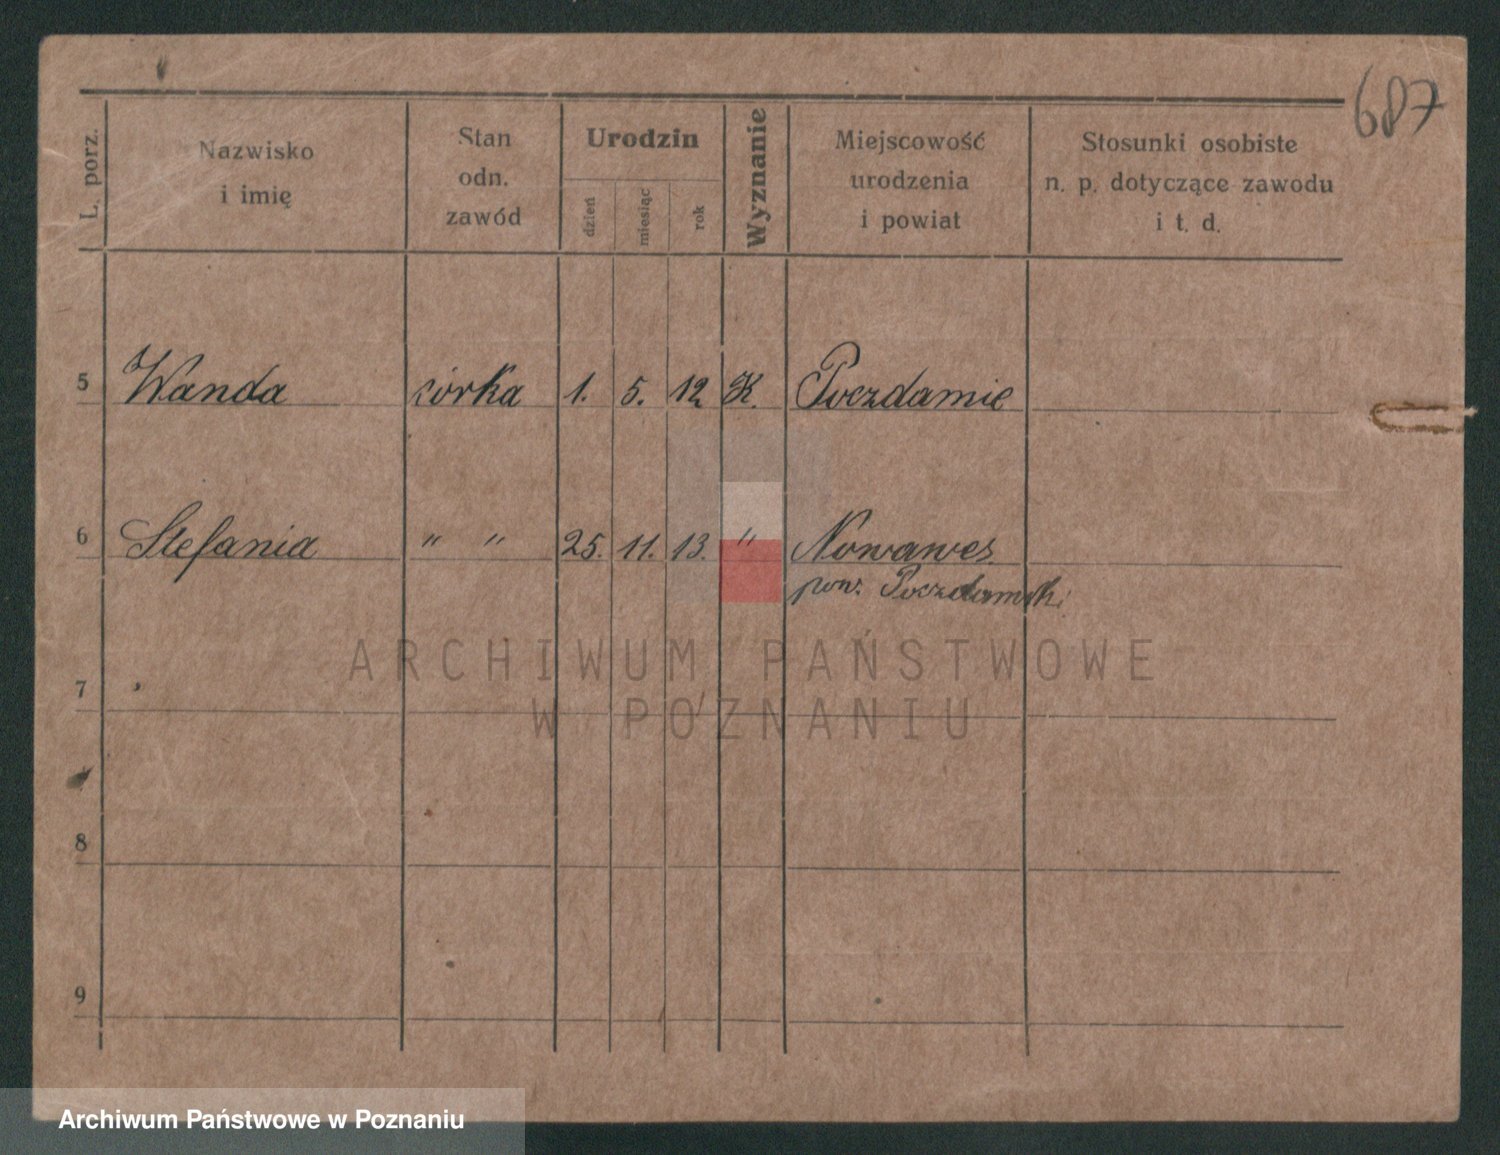 687
L. porz.
Nazwisko
i imię
Stan
odn.
zawód
Urodzin
dzień
miesiąc
rok
Wyznanie
Miejscowość
urodzenia
i powiat
Stosunki osobiste
n. p. dotyczące zawodu
i t. d.
5 Wanda córka 1. 5. 12 K. Poczdamie
6 Stefania " " 25. 11. 13. " Nowawes
pow. Poczdamski
7
8
9
ARCHIWUM PAŃSTWOWE
W POZNANIU
Archiwum Państwowe w Poznaniu